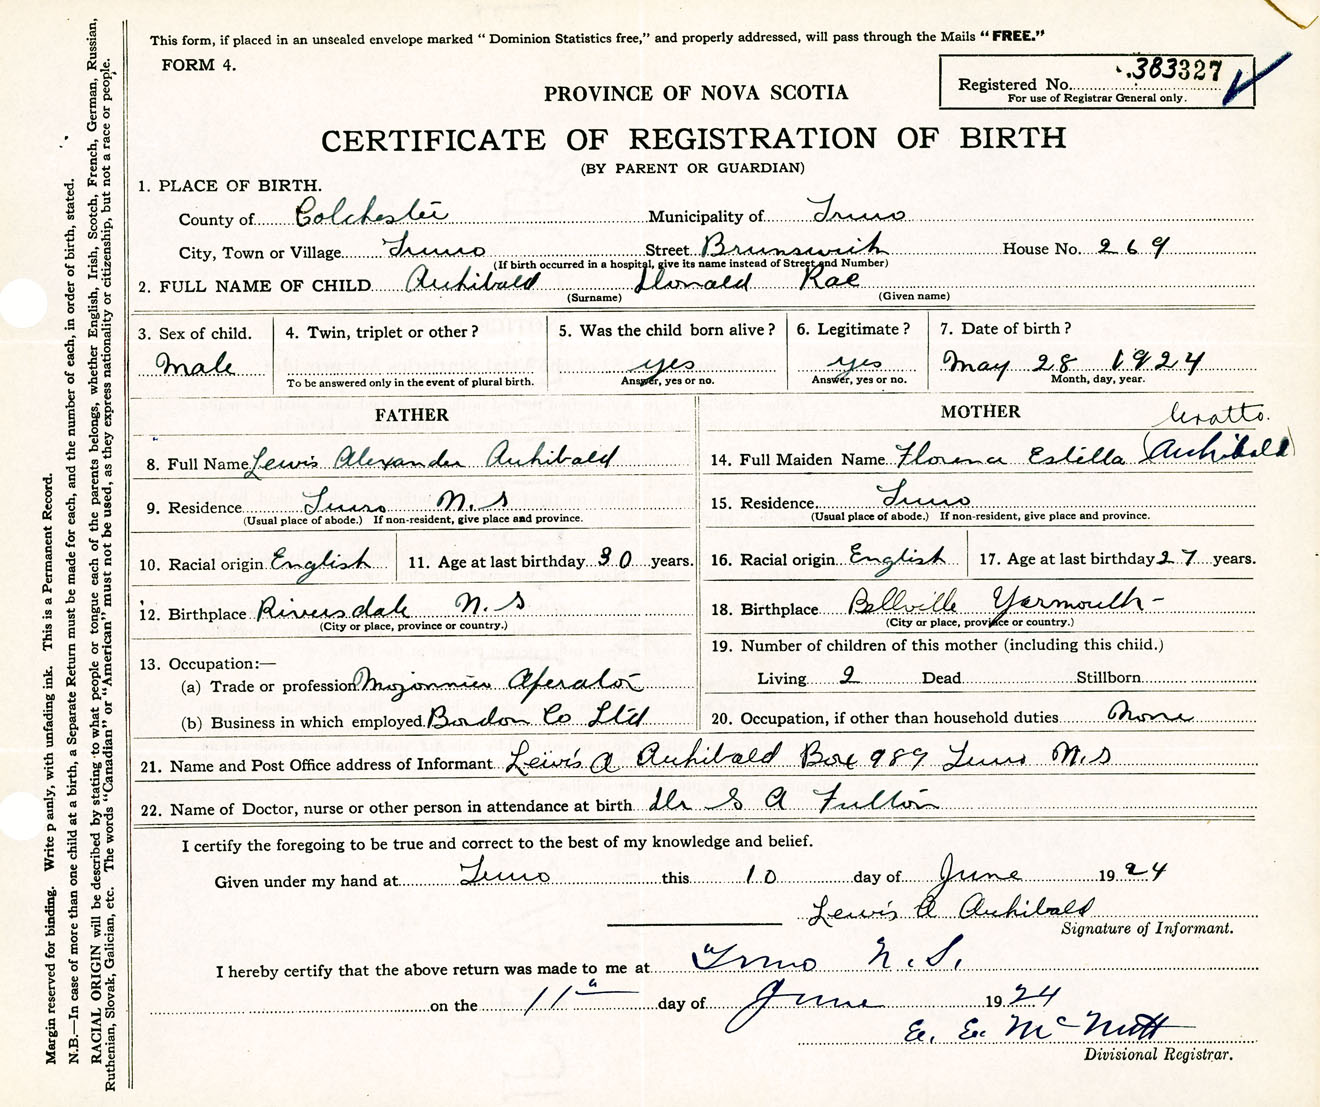 This form, if placed in an unsealed envelope marked “ Dominion Statistics free,” and properly addressed, will pass through the Mails “FREE.”
FORM 4.
Registered No. 383327
For use of Registrar General only.
PROVINCE OF NOVA SCOTIA
CERTIFICATE OF REGISTRATION OF BIRTH
(BY PARENT OR GUARDIAN)
1. PLACE OF BIRTH.
County of Colchester Municipality of Truro
City, Town or Village Truro Street Brunswick House No. 269
(If birth occurred in a hospital, give its name instead of Street and Number)
2. FULL NAME OF CHILD Archibald Donald Rae
(Surname) (Given name)
3. Sex of child. 4. Twin, triplet or other? 5. Was the child born alive? 6. Legitimate? 7. Date of birth?
Male yes yes May 28 1924
To be answered only in the event of plural birth. Answer, yes or no. Answer, yes or no. Month, day, year.
FATHER
8. Full Name Lewis Alexander Archibald
9. Residence Truro N.S
(Usual place of abode.) If non-resident, give place and province.
10. Racial origin English 11. Age at last birthday 30 years.
12. Birthplace Riversdale N.S
(City or place, province or country.)
13. Occupation:—
(a) Trade or profession Mojonnier Operator
(b) Business in which employed Bordon Co Ltd
MOTHER
14. Full Maiden Name Florence Estella (Archibald)
15. Residence Truro
(Usual place of abode.) If non-resident, give place and province.
16. Racial origin English 17. Age at last birthday 27 years.
18. Birthplace Bellville Yarmouth -
(City or place, province or country.)
19. Number of children of this mother (including this child.)
Living 2 Dead Stillborn
20. Occupation, if other than household duties None
21. Name and Post Office address of Informant Lewis A Archibald Box 989 Truro N.S
22. Name of Doctor, nurse or other person in attendance at birth Dr S A Fulton
I certify the foregoing to be true and correct to the best of my knowledge and belief.
Given under my hand at Truro this 10 day of June 1924
Lewis A Archibald
Signature of Informant.
I hereby certify that the above return was made to me at Truro N.S.
on the 11 day of June 1924
E. E. McNutt
Divisional Registrar.
Margin reserved for binding. Write p anly, with unfading ink. This is a Permanent Record.
N.B.—In case of more than one child at a birth, a Separate Return must be made for each, and the number of each, in order of birth, stated.
RACIAL ORIGIN will be described by stating to what people or tongue each of the parents belongs, whether English, Irish, Scotch, French, German, Russian,
Ruthenian, Slovak, Galician, etc. The words “Canadian” or “American” must not be used, as they express nationality or citizenship, but not a race or people.